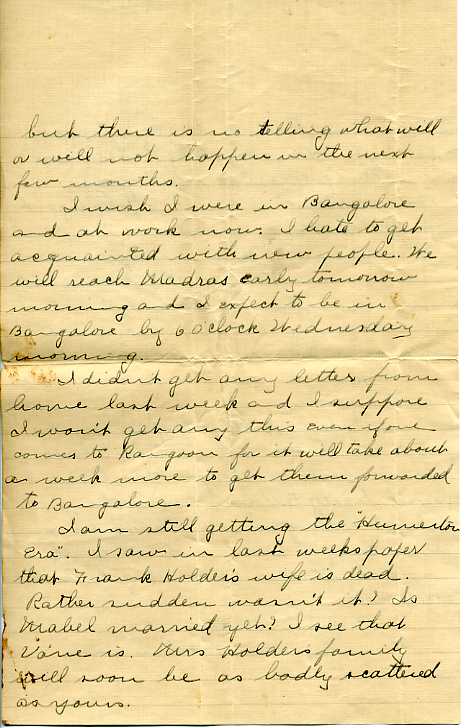 but there is no telling what will
or will not happen in the next
few months.
I wish I were in Bangalore
and at work now. I hate to get
acquainted with new people. We
will reach Madras early tomorrow
morning and I expect to be in
Bangalore by 6 O'clock Wednesday
morning.
I didn't get any letter from
home last week and I suppose
I won't get any this even if one
comes to Rangoon for it will take about
a week more to get them forwarded
to Bangalore.
I am still getting the "Humeston
Era". I saw in last weeks paper
that Frank Holder's wife is dead.
Rather sudden wasn't it? Is
Mabel married yet? I see that
is. Mrs Holders family
will soon be as badly scattered
as yours.